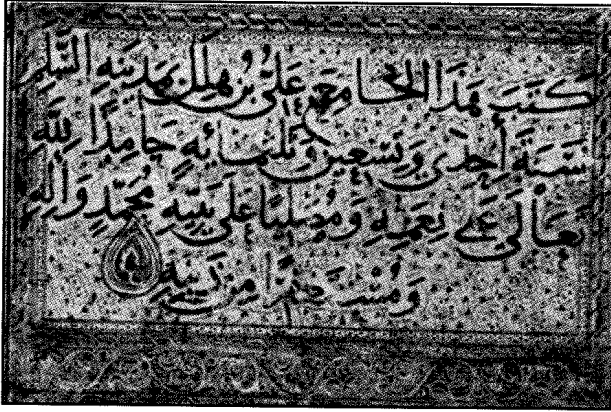 كَتَبَ هَذَا الجَامِعَ عَلِيُّ بْنُ هِلَلٍ بِمَدِينَةِ السَّلَمِ
سَنَةَ أَحِدَى وَتِسْعِينَ وَثَلثمِائَةٍ حَامِدًا لِلَّهِ
تَعَالَى عَلَى نِعَمِهِ وَمُصَلِّيًا عَلَى نَبِيِّهِ مُحَمَّدٍ وَآلِهِ
وَمُسْتَغْفِرًا مِنْ ذَنْبِهِ